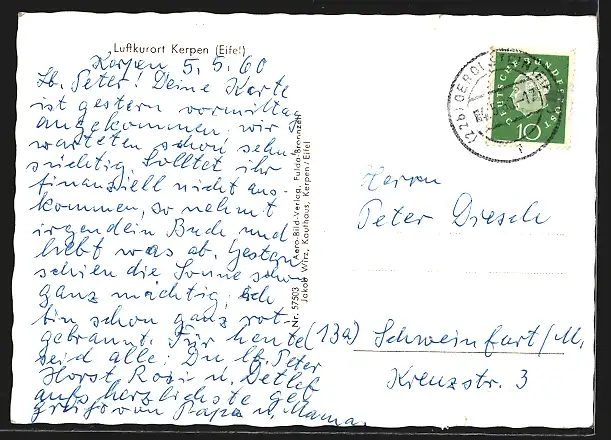 Luftkurort Kerpen (Eifel)
Kerpen 5. 5. 60
Lb. Peter! Deine Karte
ist gestern vormittag
angekommen. wir
warteten schon sehn-
süchtig. Solltet ihr
finanziell nicht aus-
kommen, so nehmt
irgendein Buch und
hebt was ab. Gestern
schien die Sonne schon
ganz mächtig, ich
bin schon ganz rot-
gebrannt. Für heute
seid alle: Du lb. Peter
Horst Rosi u. Detlef
aufs herzlichste ge-
grüßt von Papa u. Mama.
Nr. 57503 Aero-Bild-Verlag, Fulda-Bronnzell
Jakob Wirz, Kaufhaus, Kerpen/Eifel
(22b) GEROLSTEIN
DEUTSCHE BUNDESPOST
10
Herrn
Peter Diesch
(13a) Schweinfurt/M.
Kreuzstr. 3